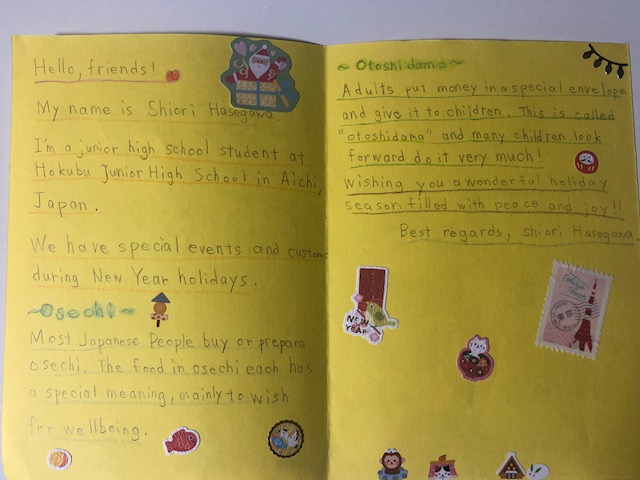 Hello, friends!
My name is Shiori Hasegawa.
I'm a junior high school student at
Hokubu Junior High School in Aichi,
Japan.
We have special events and customs
during New Year holidays.
~Osechi~
Most Japanese People buy or prepare
osechi. The food in osechi each has
a special meaning, mainly to wish
for wellbeing.
~Otoshidama~
Adults put money in a special envelope
and give it to children. This is called
"otoshidama" and many children look
forward do it very much!
Wishing you a wonderful holiday
season filled with peace and joy!!
Best regards, Shiori Hasegawa.
NEW
YEAR
Tokyo
Tower
東京